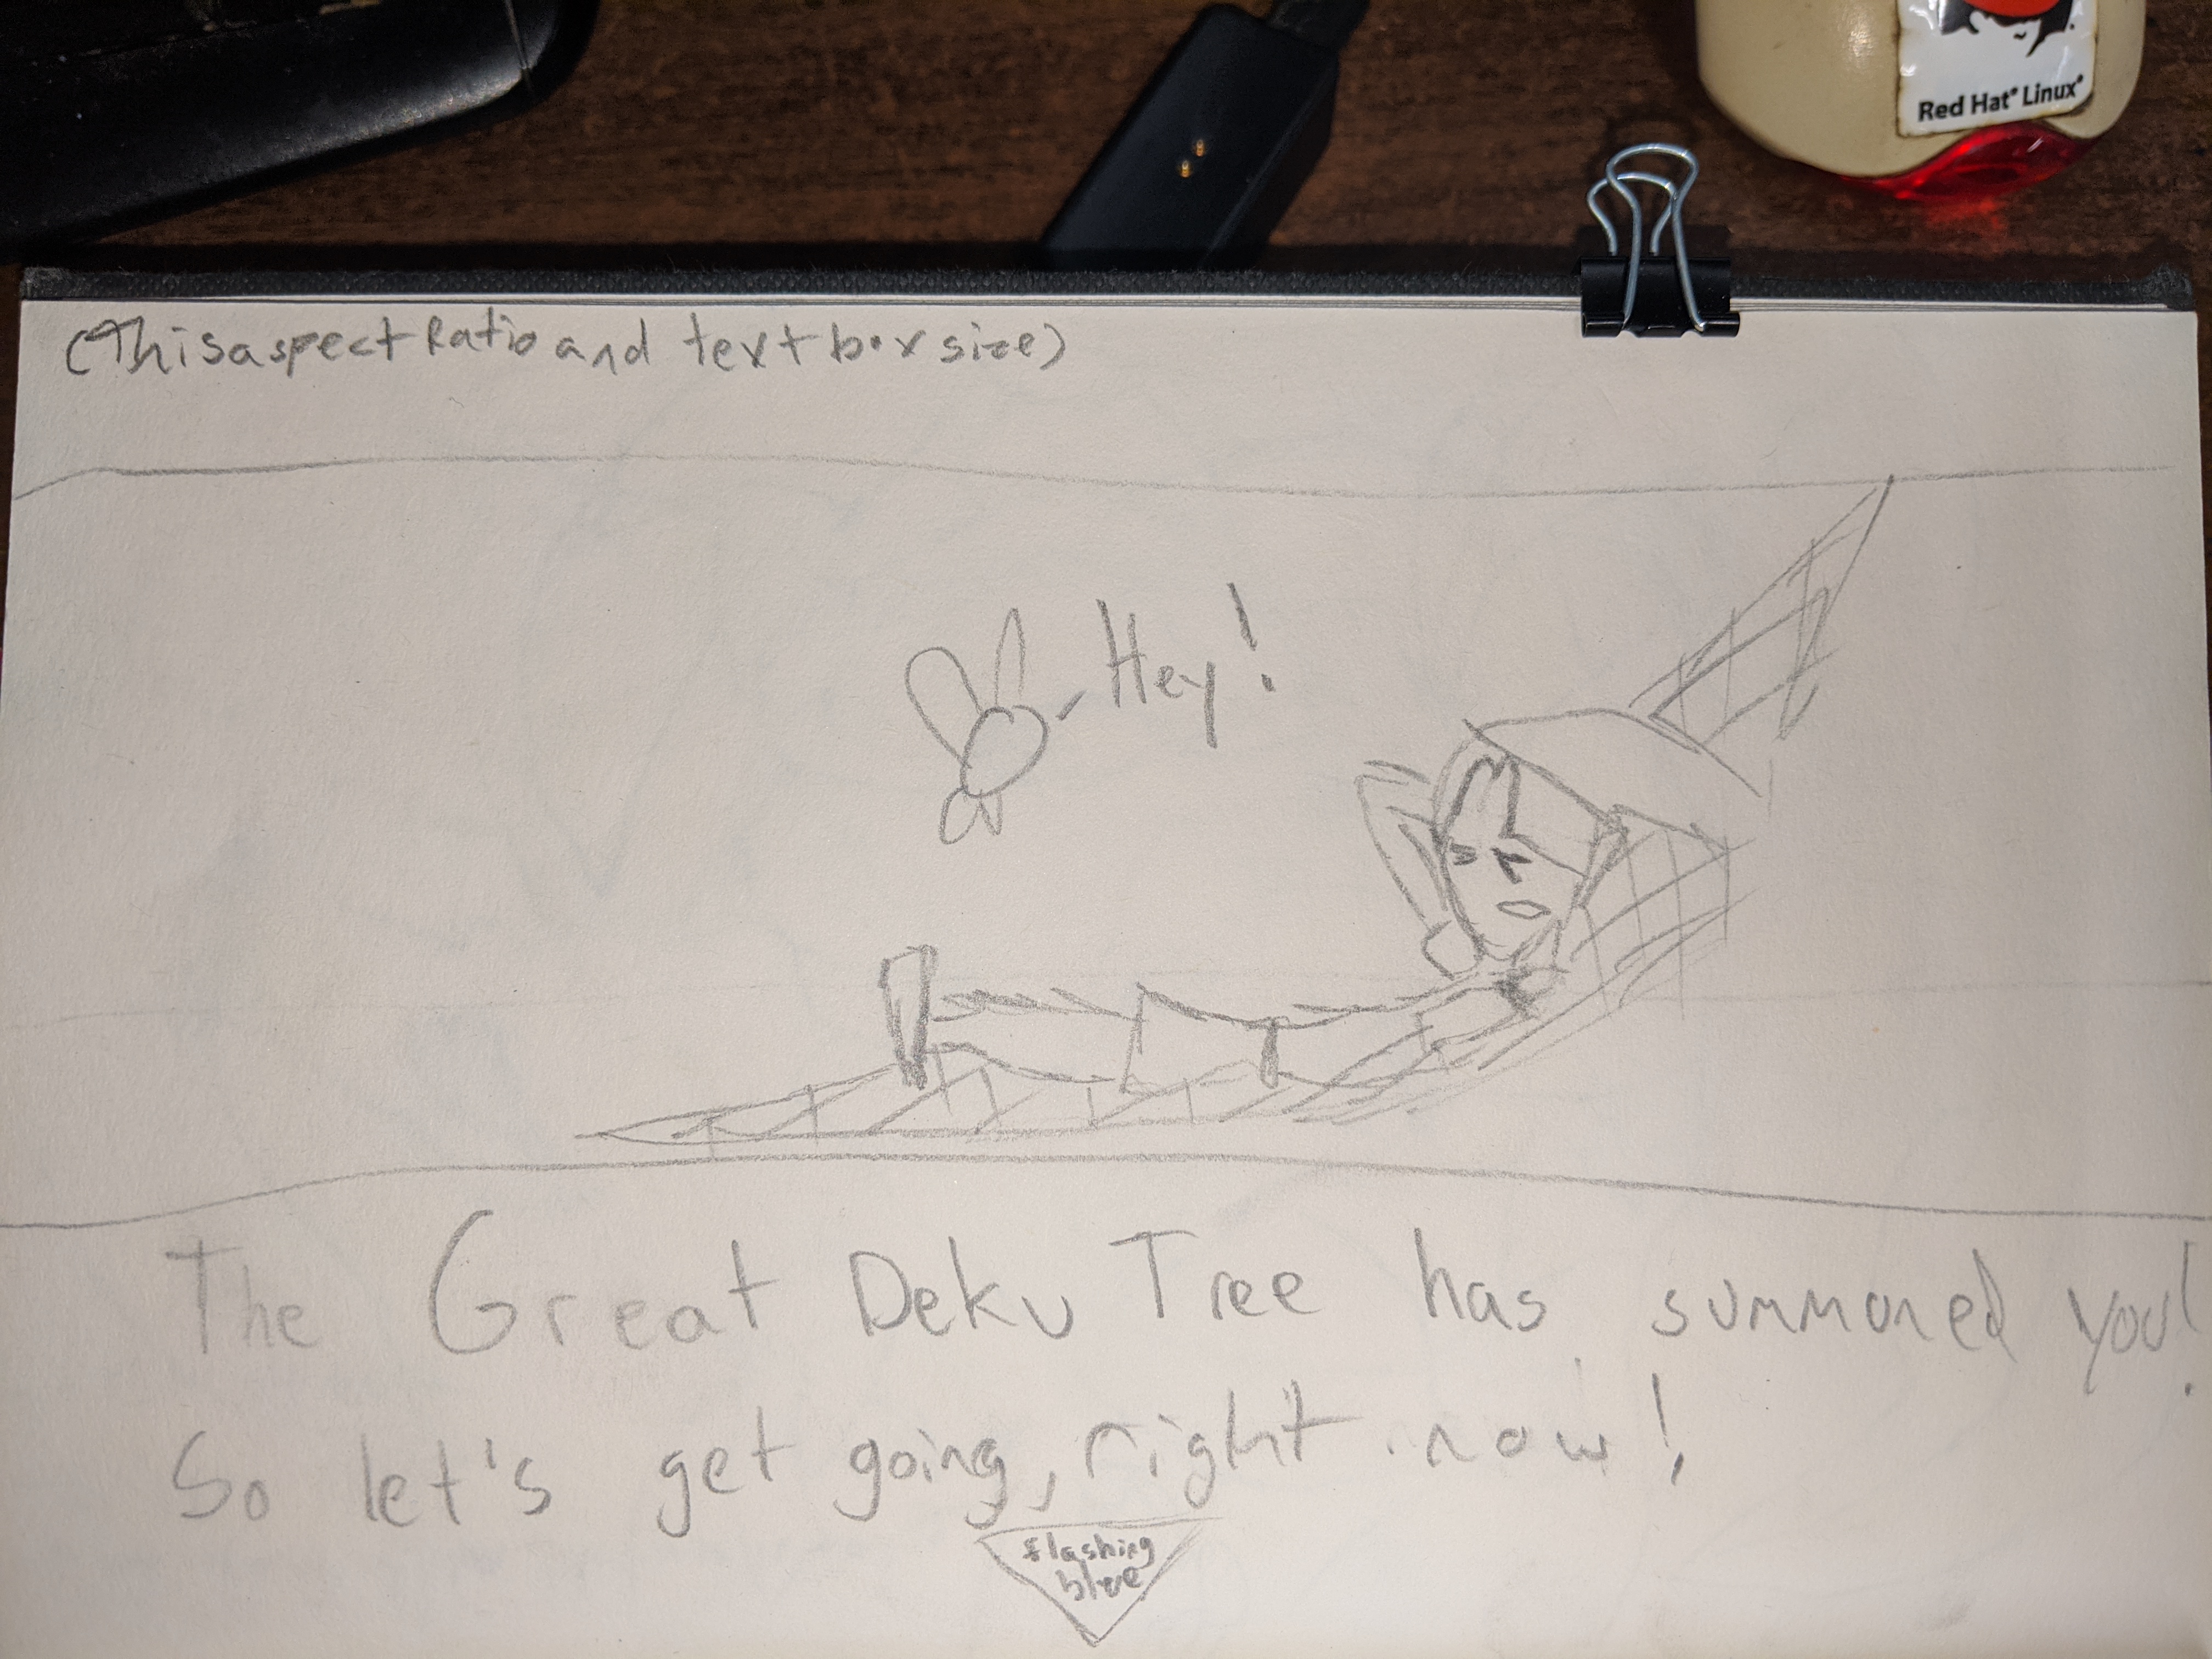 Red Hat® Linux®
(This aspect Ratio and text box size)
Hey!
The Great Deku Tree has summoned you!
So let's get going, right now!
flashing
blue